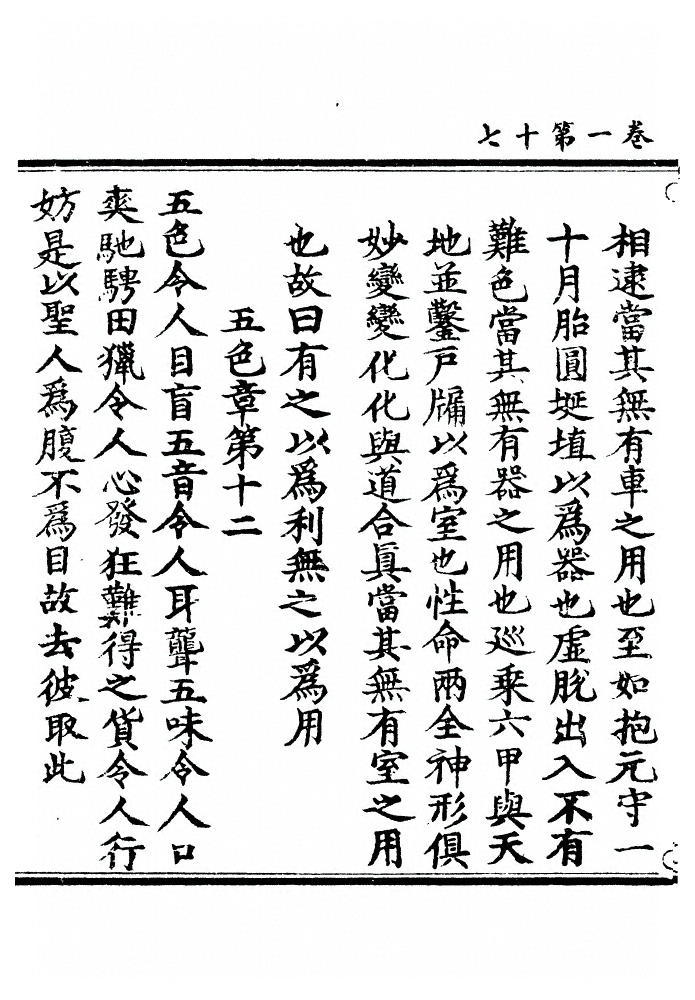 卷一第十七
相逮當其無有車之用也至如抱元守一
十月胎圓埏埴以爲器也虛脫出入不有
難色當其無有器之用也巡乘六甲與天
地並鑿戸牖以爲室也性命兩全神形俱
妙變變化化與道合眞當其無有室之用
也故曰有之以爲利無之以爲用
五色章第十二
五色令人目盲五音令人耳聾五味令人口
爽馳騁田獵令人心發狂難得之貨令人行
妨是以聖人爲腹不爲目故去彼取此